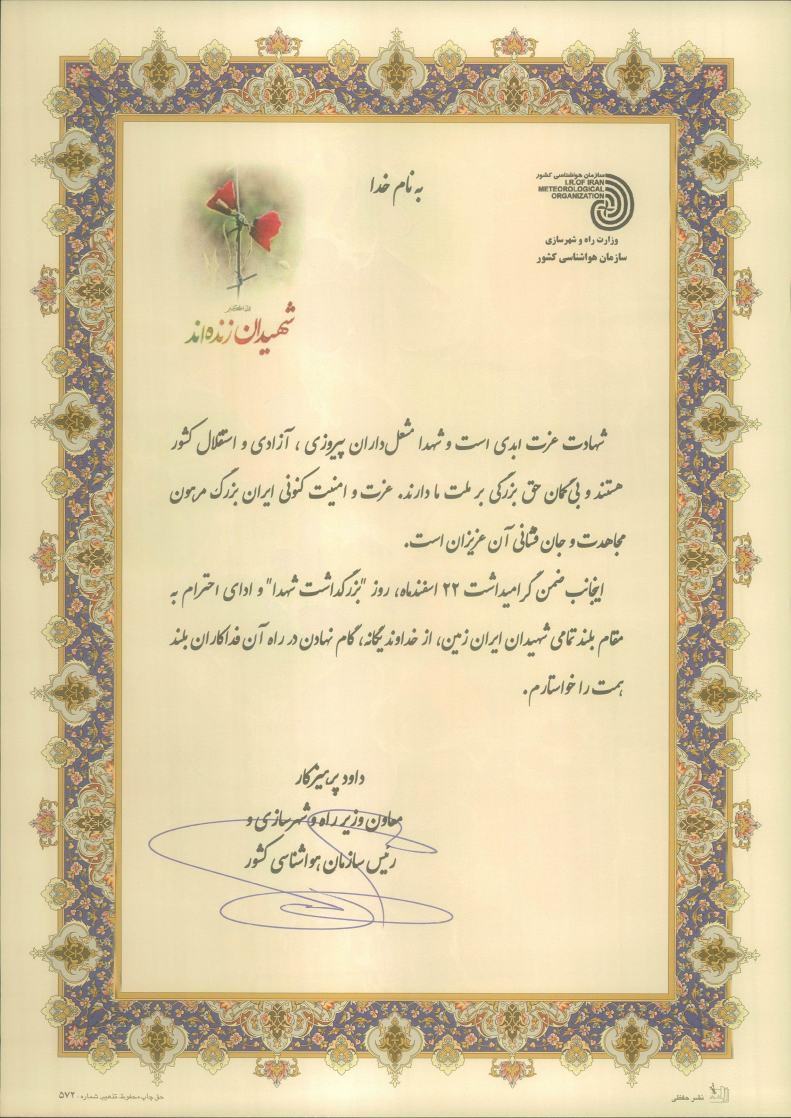 به نام خدا
سازمان هواشناسی کشور
I.R.OF IRAN
METEOROLOGICAL
ORGANIZATION
وزارت راه و شهرسازی
سازمان هواشناسی کشور
شهیدان زنده‌اند
شهادت عزت ابدی است و شهدا مشعل‌داران پیروزی ، آزادی و استقلال کشور
هستند و بی‌گمان حق بزرگی بر ملت ما دارند. عزت و امنیت کنونی ایران بزرگ مرهون
مجاهدت و جان فشانی آن عزیزان است.
اینجانب ضمن گرامیداشت ۲۲ اسفندماه، روز "بزرگداشت شهدا" و ادای احترام به
مقام بلند تمامی شهیدان ایران زمین، از خداوند یگانه، گام نهادن در راه آن فداکاران بلند
همت را خواستارم.
داود پرهیزکار
معاون وزیر راه و شهرسازی و
رئیس سازمان هواشناسی کشور
حق چاپ محفوظ. تذهیب شماره ۵۷۲۰
نشر حفظی